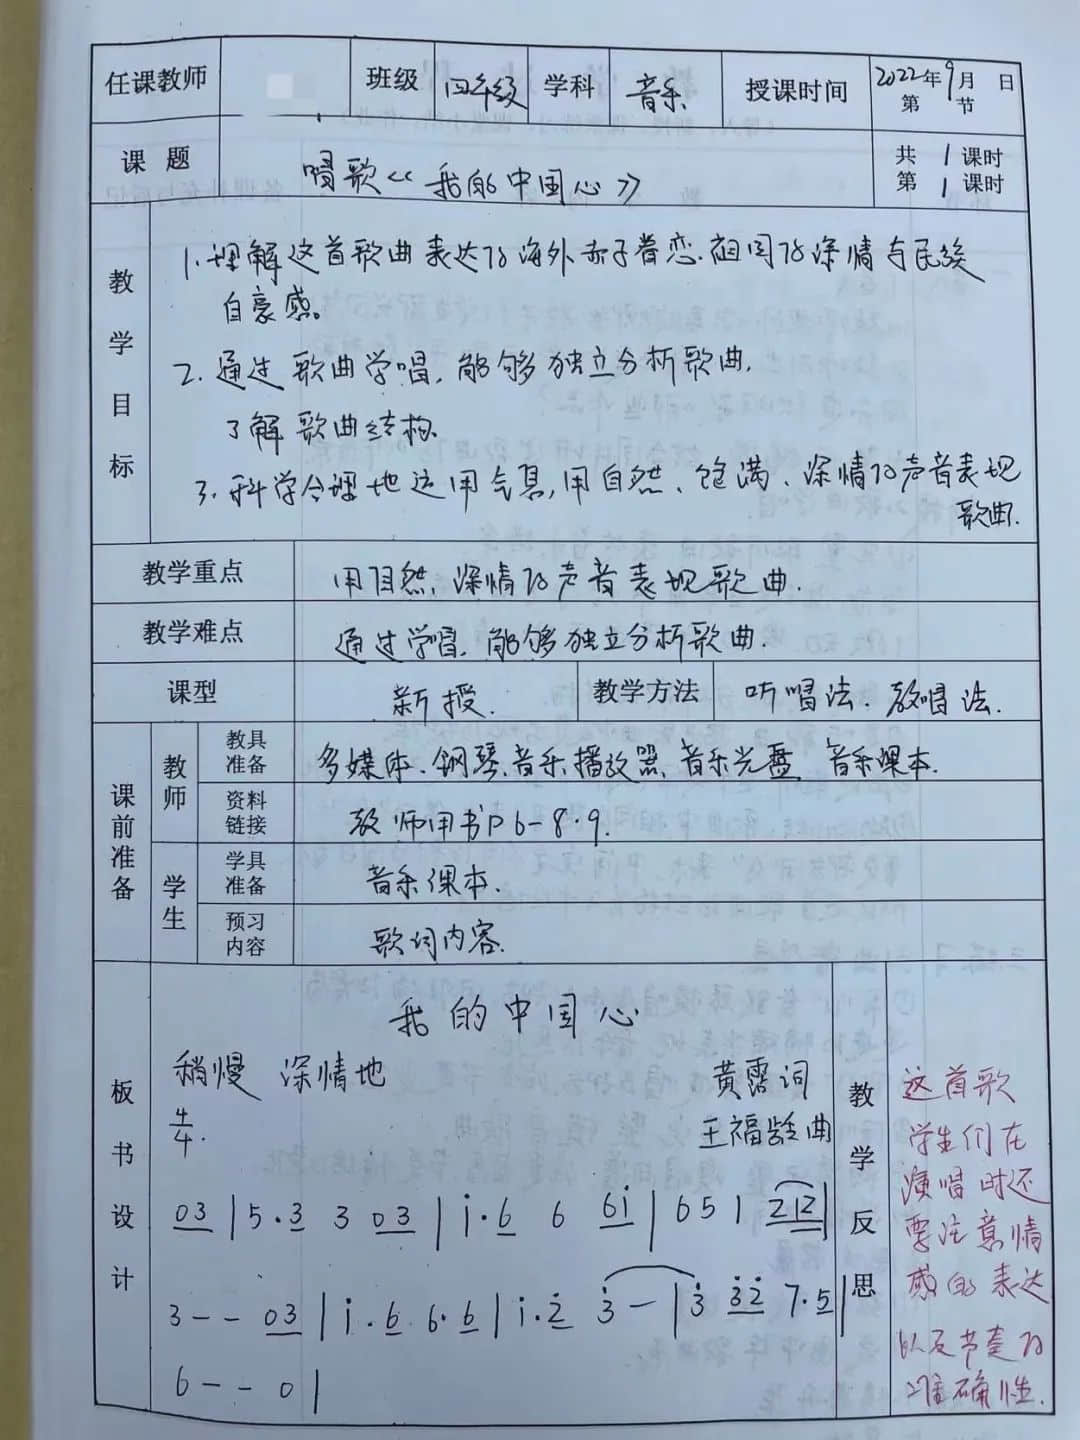 任课教师 班级 四年级 学科 音乐 授课时间 2022年9月 日
第 节
课题 唱歌《我的中国心》 共 1 课时
第 1 课时
教学目标
1.理解这首歌曲表达的海外赤子眷恋祖国的深情与民族
自豪感。
2.通过歌曲学唱,能够独立分析歌曲.
了解歌曲结构.
3.科学合理地运用气息,用自然、饱满、深情的声音表现
歌曲.
教学重点 用自然,深情的声音表现歌曲.
教学难点 通过学唱,能够独立分析歌曲.
课型 新授. 教学方法 听唱法.教唱法.
课前准备
教师
教具准备 多媒体、钢琴、音乐播放器、音乐光盘、音乐课本.
资料链接 教师用书P6-8.9.
学生
学具准备 音乐课本.
预习内容 歌词内容.
板书设计
我的中国心
稍慢 深情地 黄霑词
4/4. 王福龄曲
03|5.3 3 03|i.6 6 6i|651 212|
3--03|i.6 6.6|i.2 3-|3 32 7.5|
6--0|
教学反思
这首歌
学生们在
演唱时还
要注意情
感的表达
以及节奏的
准确性.